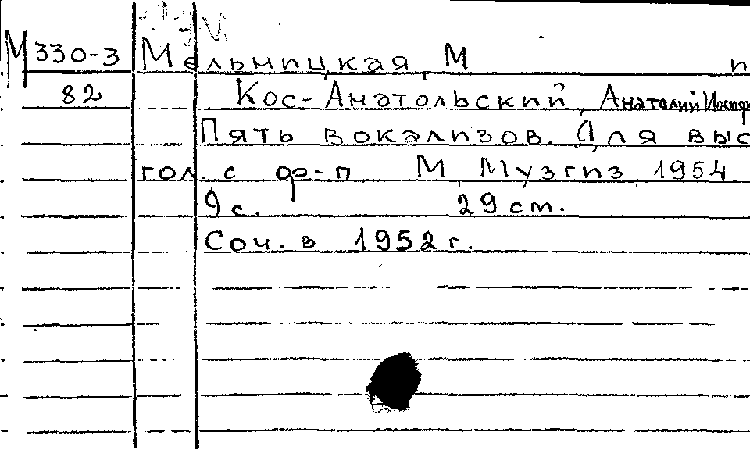 М 330-3 Мельницкая, М п
82 Кос-Анатольский, Анатолий
Пять вокализов. Для выс
гол. с ф-п М Музгиз 1954
9 с. 29 cm.
Соч. в 1952 г.